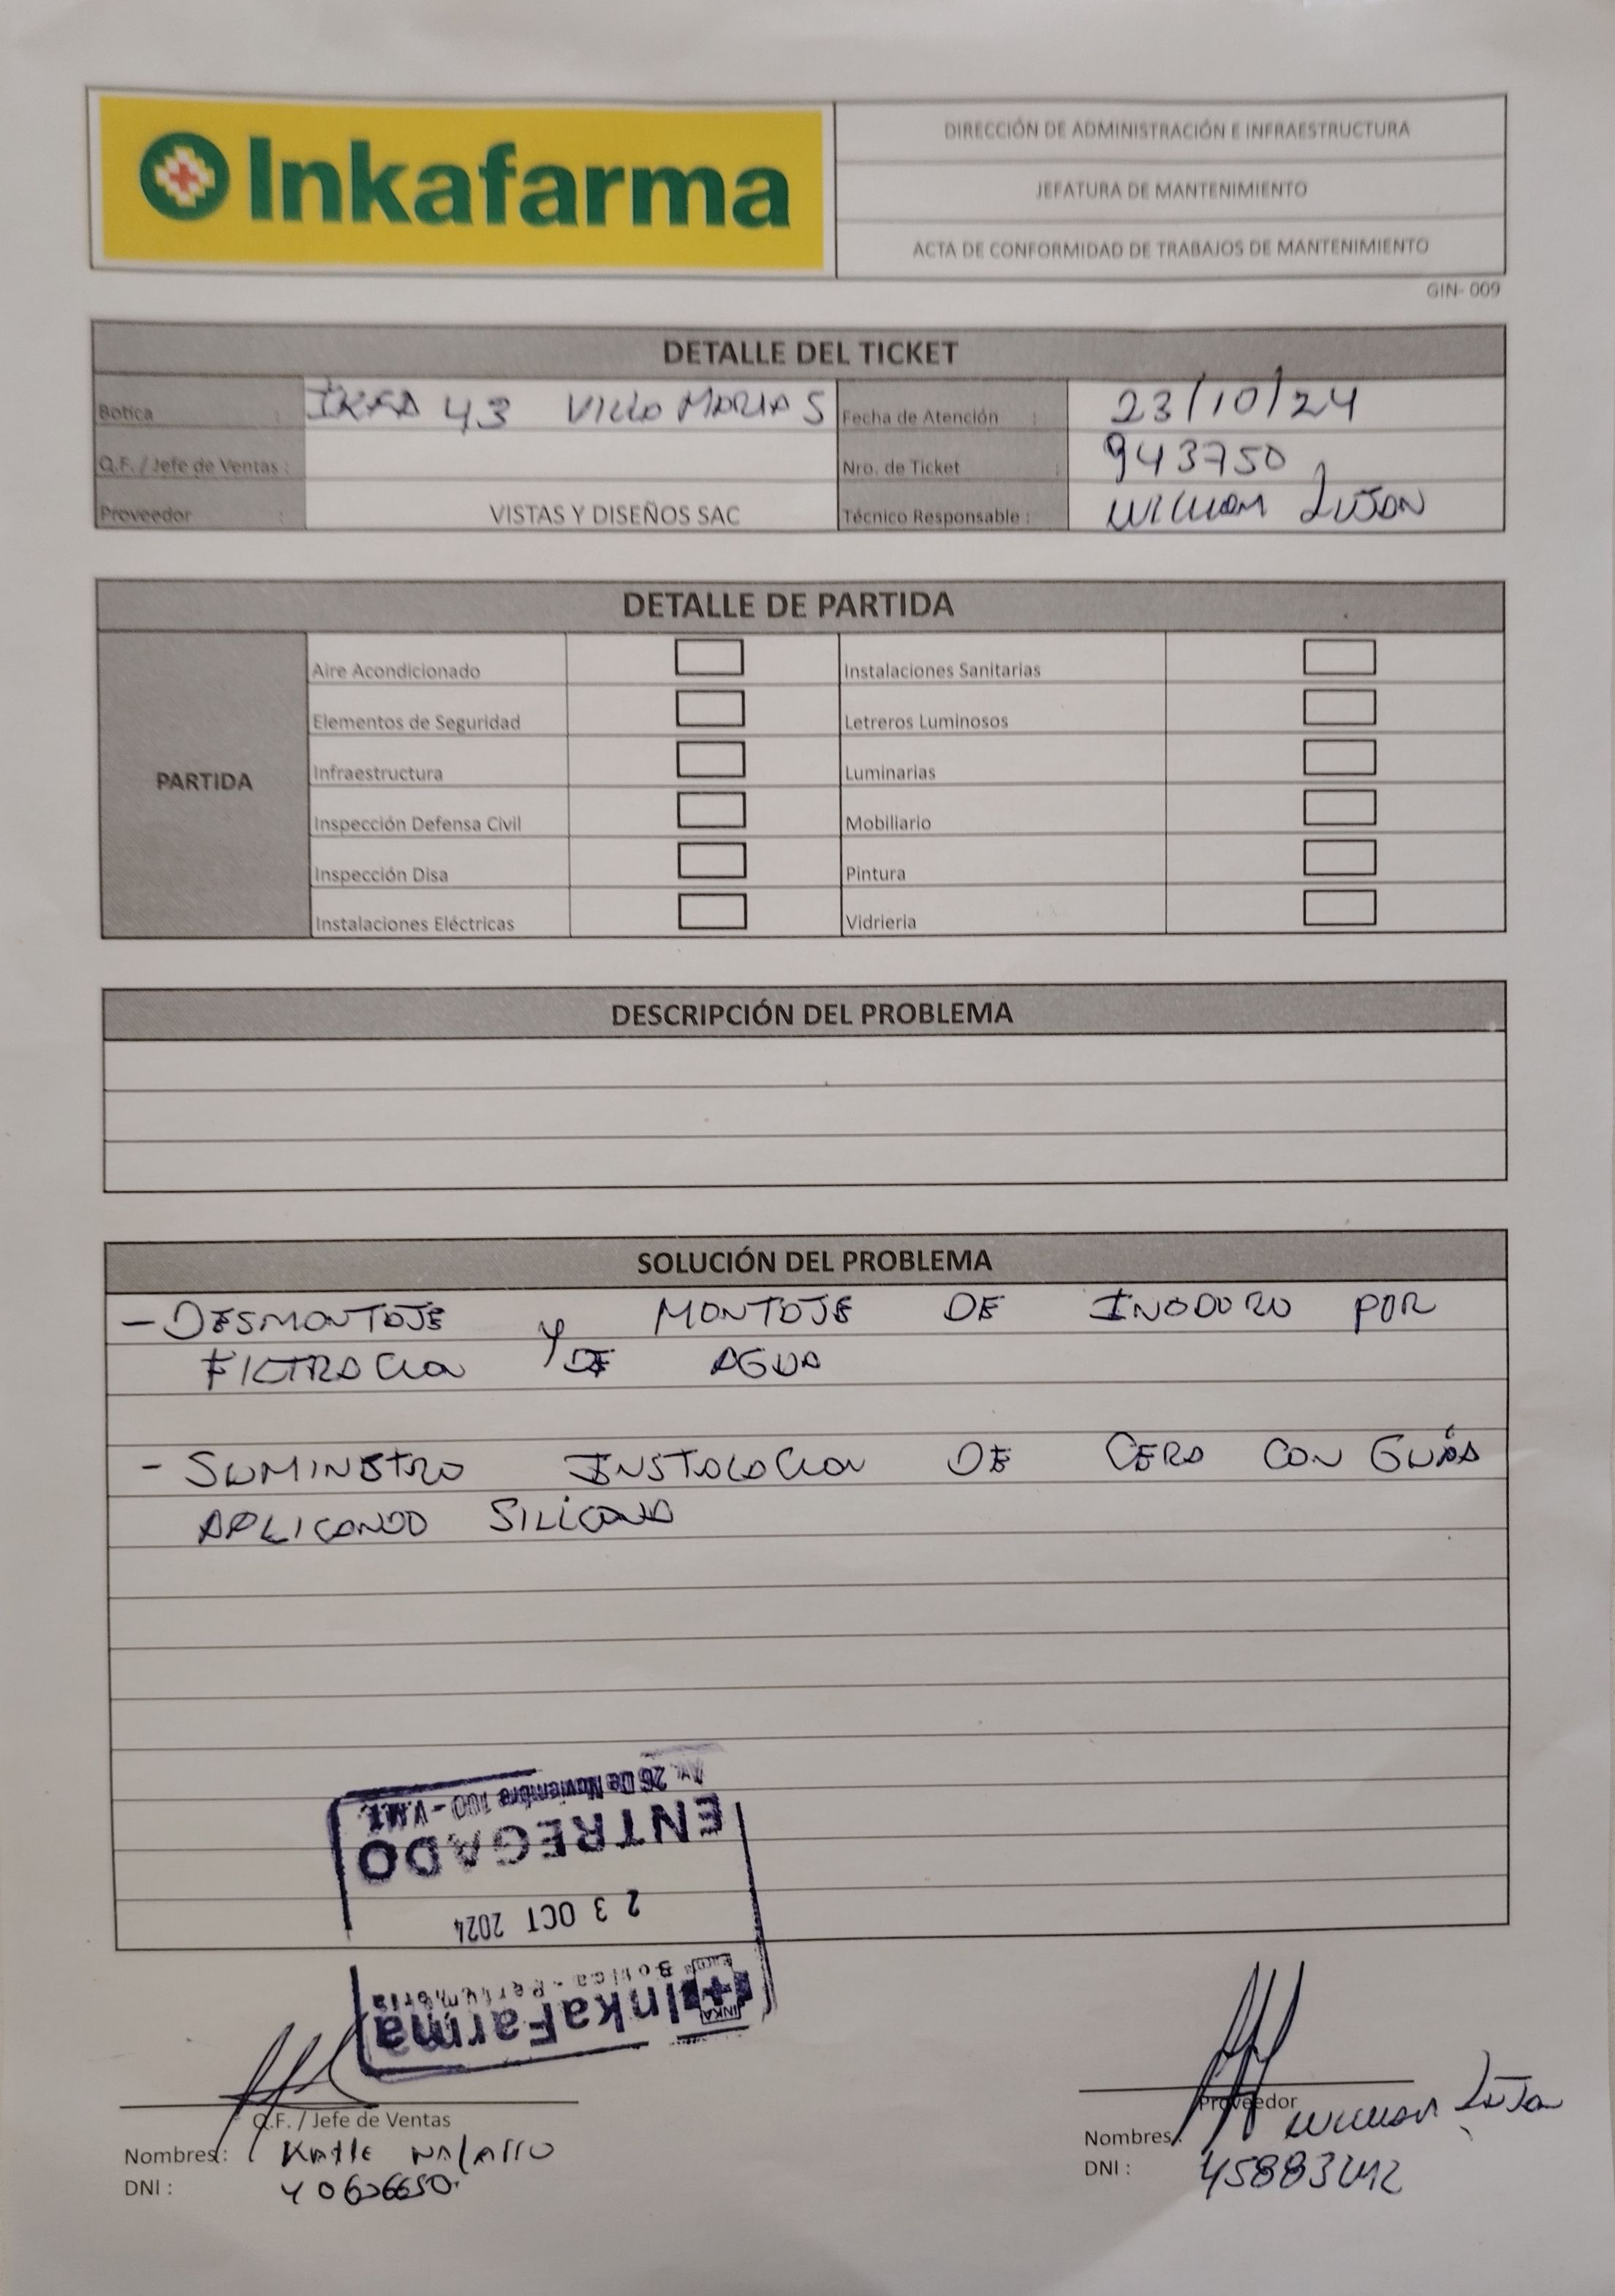 Inkafarma
DIRECCIÓN DE ADMINISTRACIÓN E INFRAESTRUCTURA
JEFATURA DE MANTENIMIENTO
ACTA DE CONFORMIDAD DE TRABAJOS DE MANTENIMIENTO
GIN- 009
DETALLE DEL TICKET
Botica : IKFA 43 VILLA MARIA 5 Fecha de Atención : 23/10/24
Q.F. / Jefe de Ventas : Nro. de Ticket : 943750
Proveedor : VISTAS Y DISEÑOS SAC Técnico Responsable : WILLIAM LUJAN
DETALLE DE PARTIDA
PARTIDA
Aire Acondicionado Instalaciones Sanitarias
Elementos de Seguridad Letreros Luminosos
Infraestructura Luminarias
Inspección Defensa Civil Mobiliario
Inspección Disa Pintura
Instalaciones Eléctricas Vidrieria
DESCRIPCIÓN DEL PROBLEMA
SOLUCIÓN DEL PROBLEMA
- DESMONTAJE Y MONTAJE DE INODORO POR
FILTRACION DE AGUA
- SUMINISTRO INSTALACION DE CERA CON GUÍA
APLICANDO SILICONA
InkaFarma
Botica - Perfumería
23 OCT 2024
ENTREGADO
Av. 26 De Noviembre 100 - V.M.T.
Q.F. / Jefe de Ventas
Nombres:
DNI :
Proveedor
Nombres: WILLIAM LUJAN
DNI :